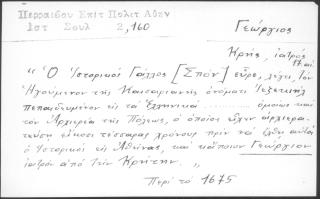 Περραιδου Επίτ Πολιτ Αθην
Ιστ Σουλ 2,160
Γεώργιος
Κρής, ἰατρός
17 αι.
"Ὁ Ἱστορικός Γάλλος [Σπόν] εὗρε, λέγει, τόν
Ἡγούμενον τῆς Καισαριανῆς ὀνόματι Ἰεζεκιήλ
πεπαιδευμένον εἰς τά Ἑλληνικά ......... ὁμοίως καί
τόν Ἀρχιερέα τῆς Πόλεως, ὁ ὁποῖος εἶχεν ἀρχιερα-
τεύσῃ εἴκοσι τέσσαρας χρόνους πρίν νά ἔλθῃ αὐτός
ὁ Ἱστορικός εἰς Ἀθήνας, καί κάποιον Γεώργιον
ἰατρόν ἀπό τήν Κρήτην."
Περί τό 1675